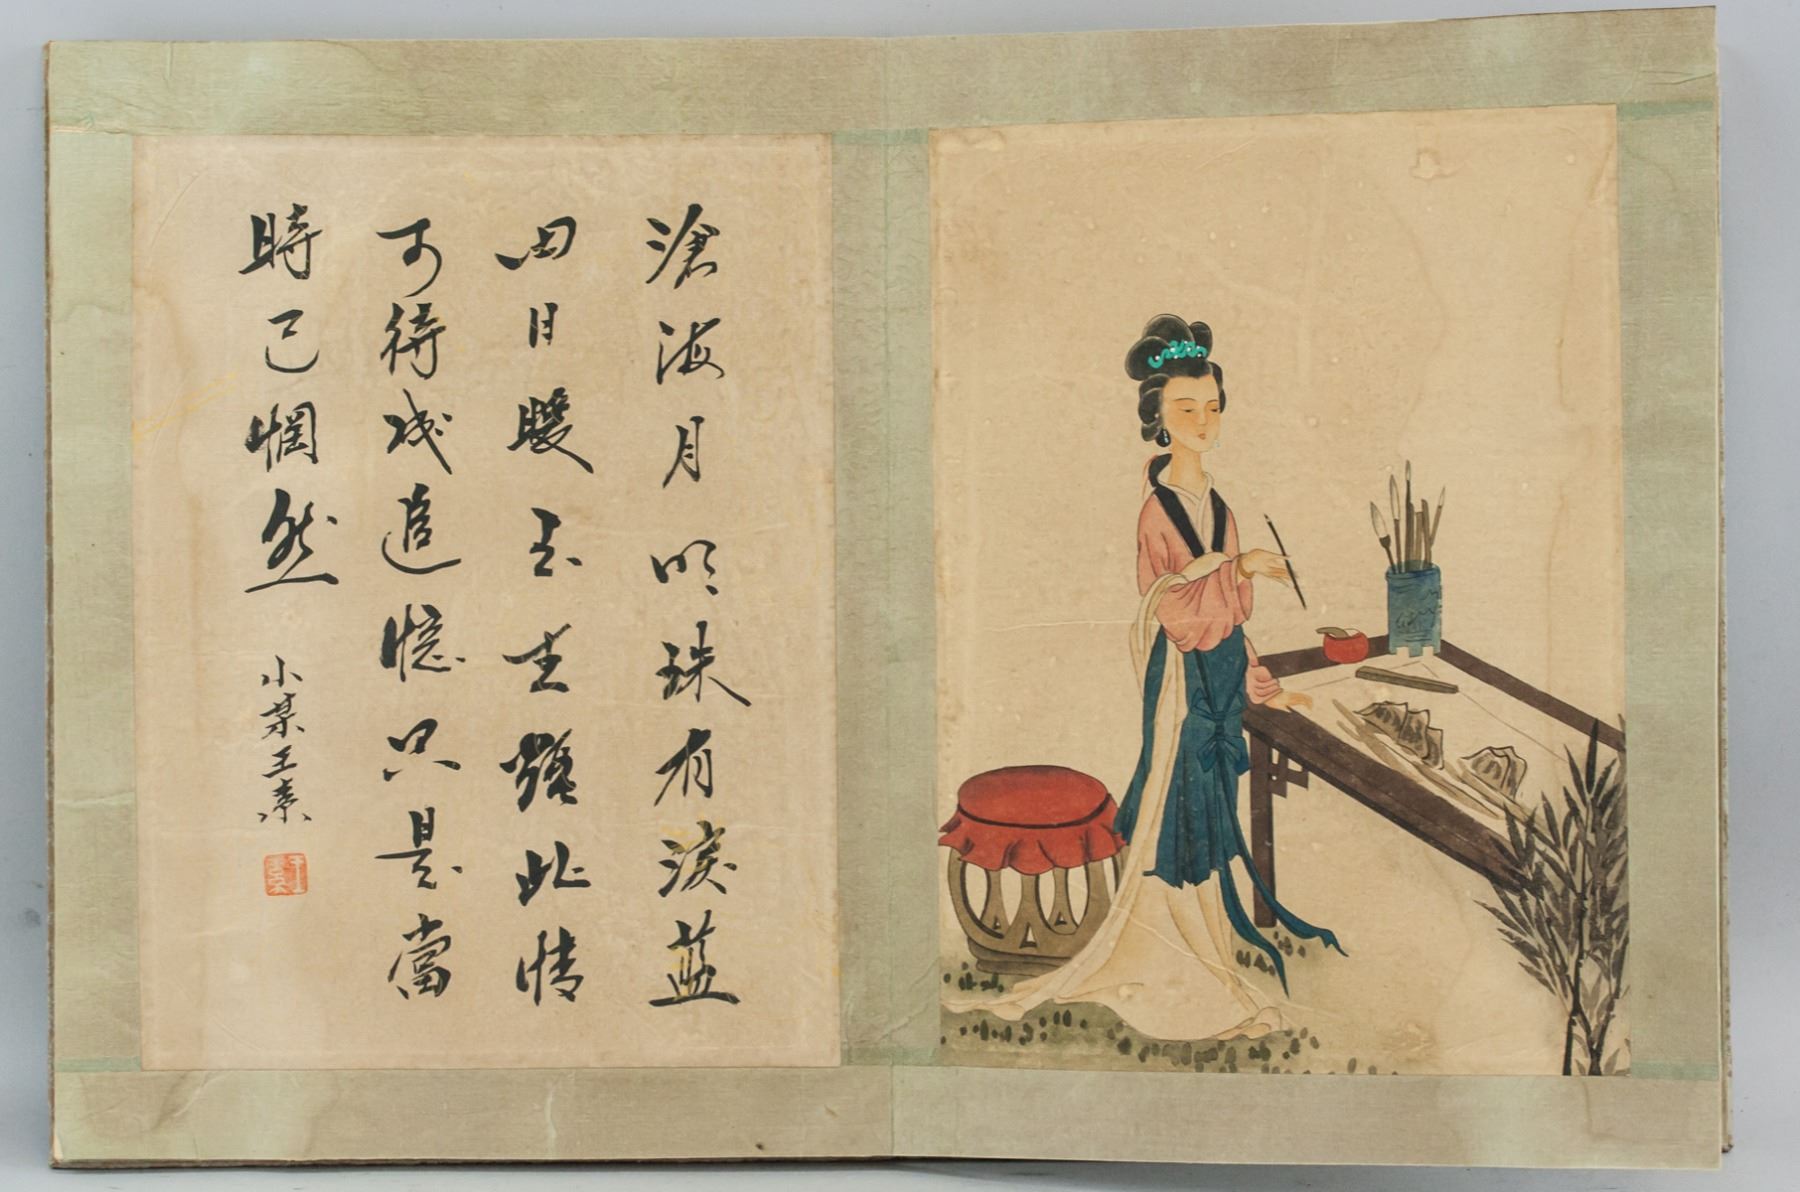 滄海月明珠有淚藍
田日暖玉生煙此情
可待成追憶只是當
時已惘然
小某王素
王素